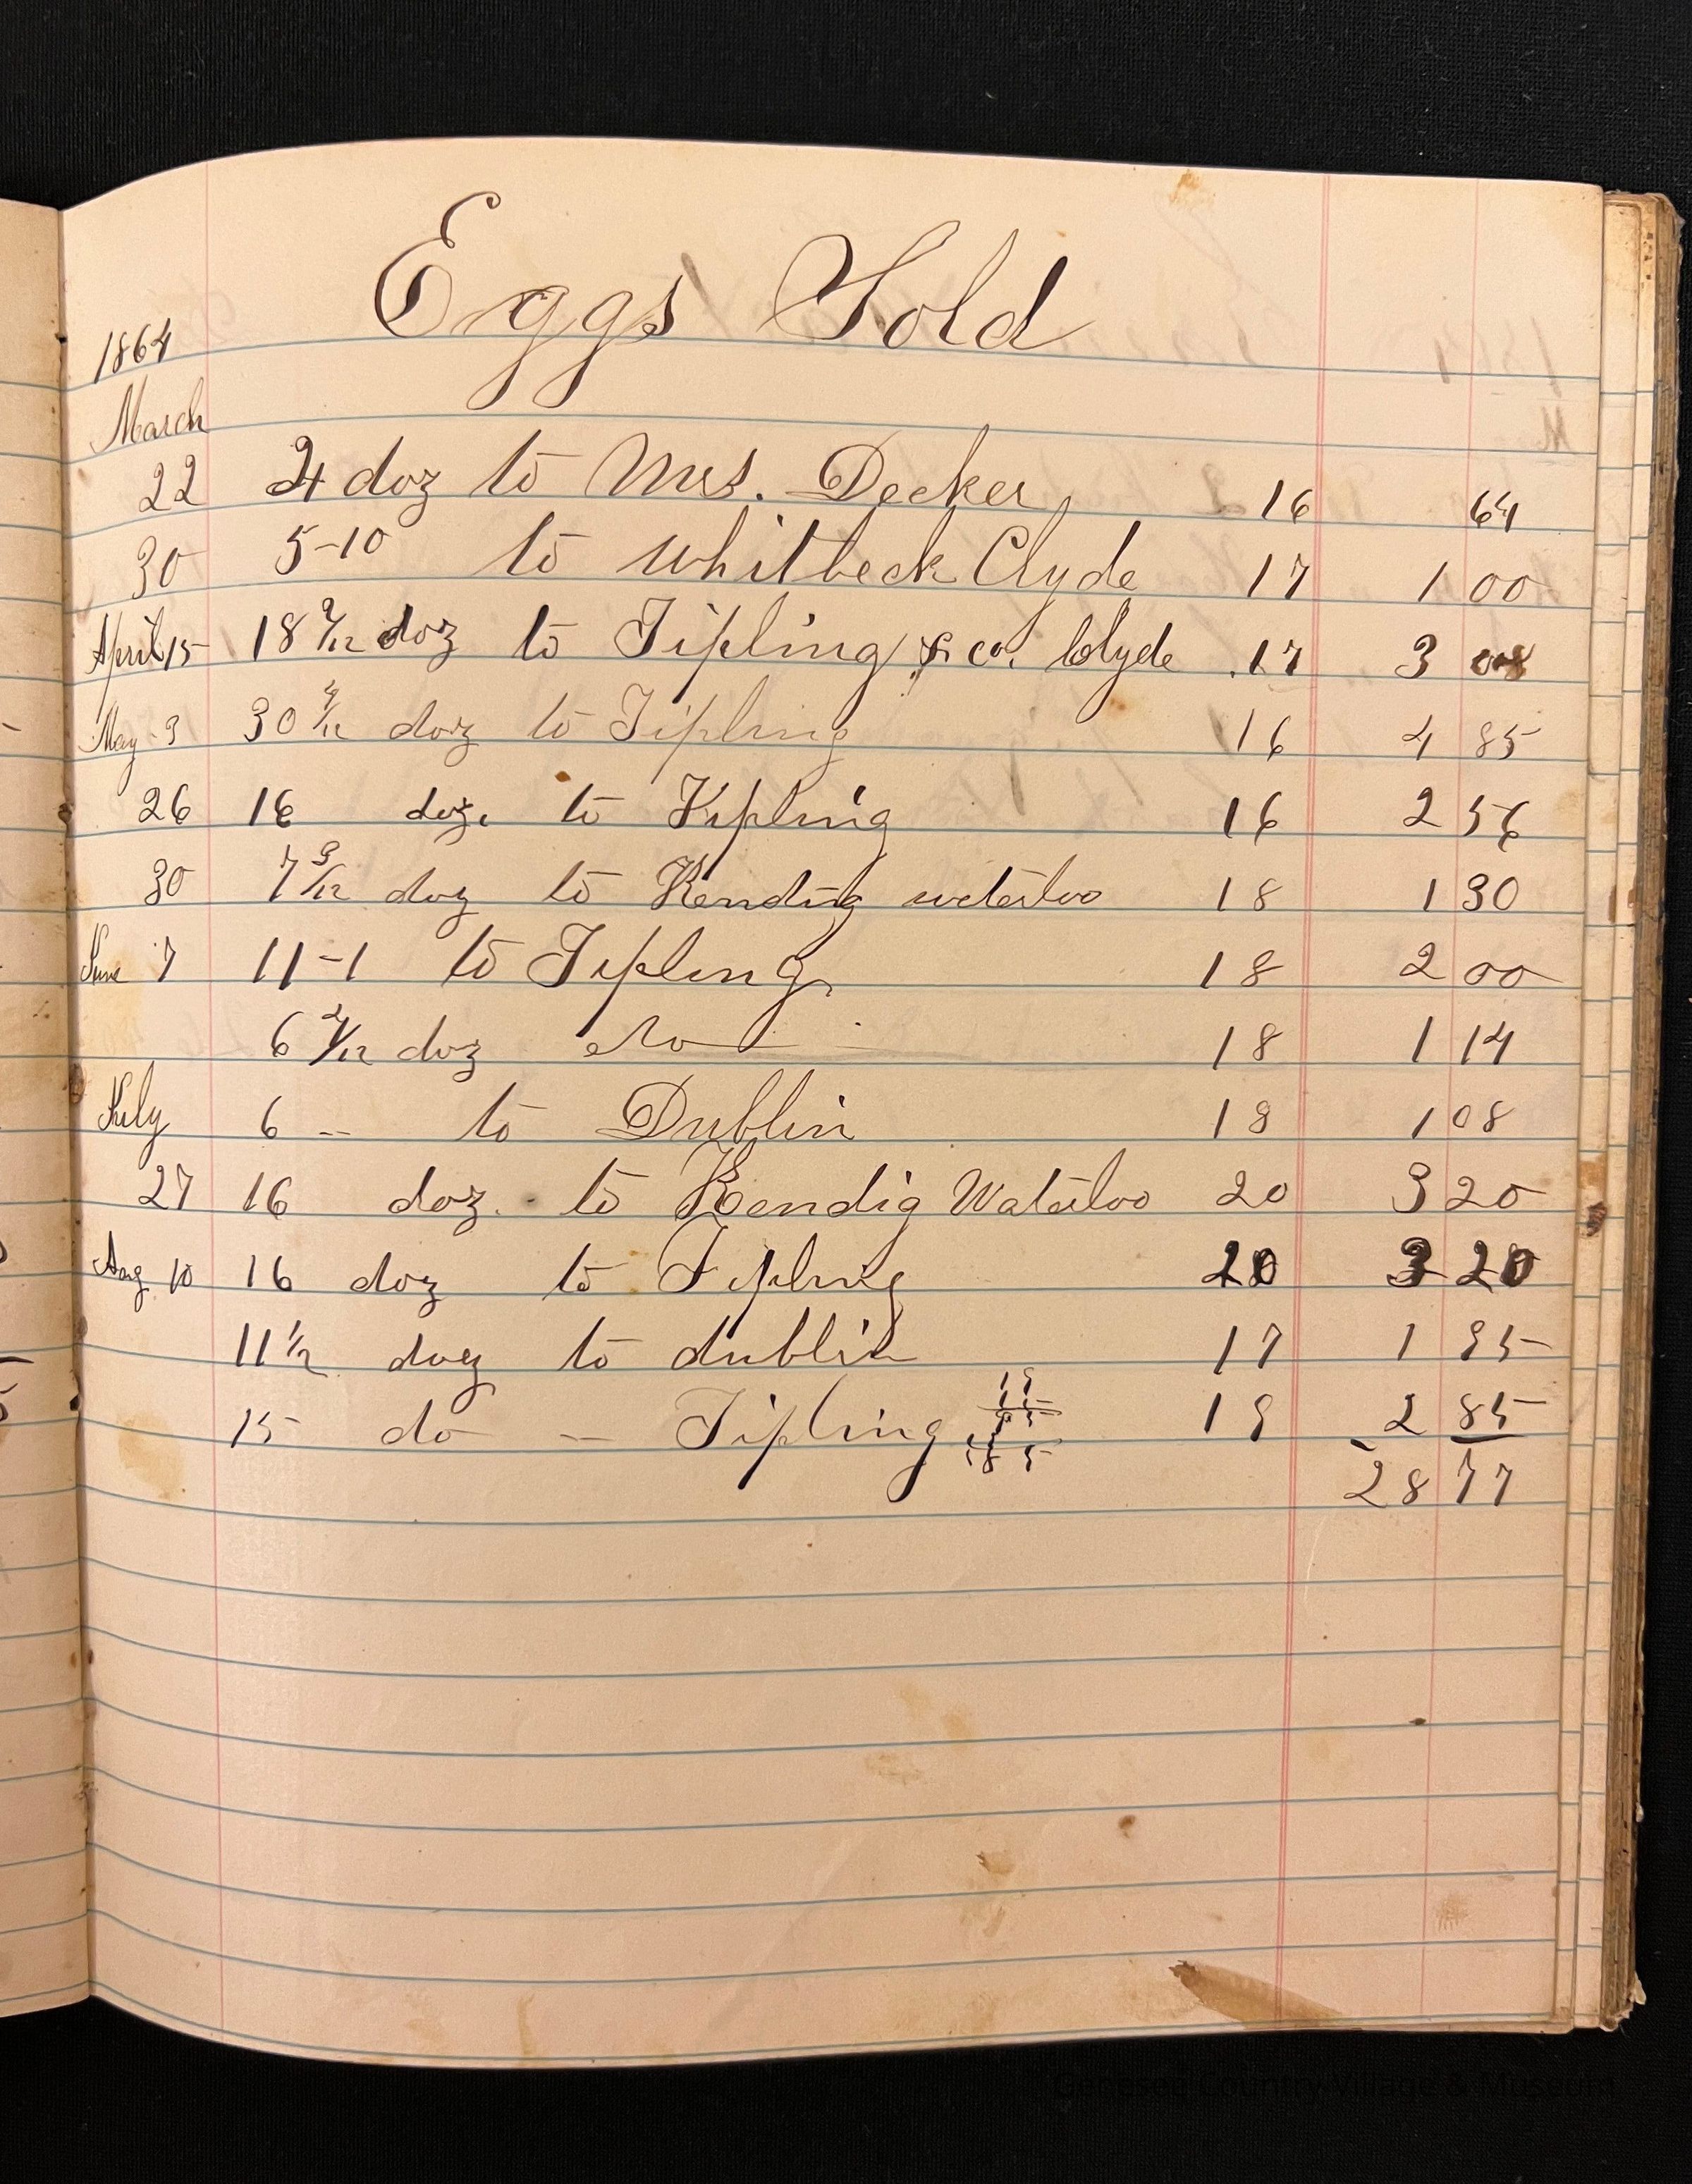 Eggs Sold
1864
March
22 4 doz to Mrs. Decker 16 64
30 5-10 to Whitbeck Clyde 17 1 00
April 15 18 2/12 doz to Tipling & co. Clyde .17 3 08
May 3 30 4/12 doz to Tipling 16 4 85
26 16 doz. to Kipling 16 2 56
30 7 3/12 doz to Kendig waterloo 18 1 30
June 7 11-1 to Tipling 18 2 00
6 4/12 doz do 18 1 14
July 6 -- to Dublin 18 1 08
27 16 doz. to Kendig Waterloo 20 3 20
Aug 10 16 doz to Tipling 20 3 20
11 1/2 doz to dublin 17 1 95
15 do -- Tipling 19 2 85
28 77
Genesee Country Village & Museum